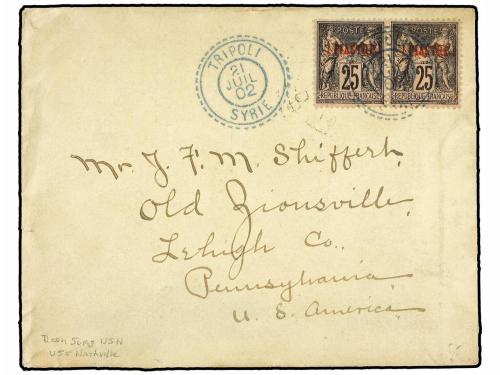 POSTE POSTE
1 PIASTRE 1 PIASTRE
25 25
REPUBLIQUE FRANCAISE REPUBLIQUE FRANCAISE
TRIPOLI
21
JUIL
02
SYRIE
Mr J. F. M. Shiffert,
Old Zionsville,
Lehigh Co.,
Pennsylvania
U. S. America.
USN
USS Nashville